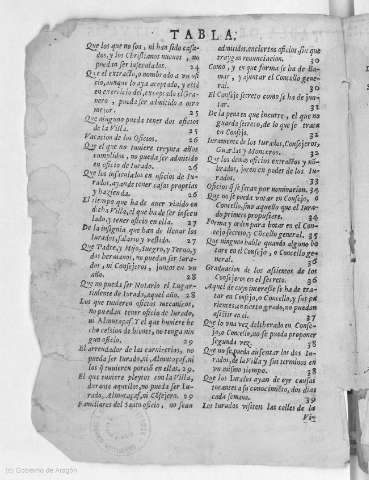 TABLA;
Que los que no son, ni han sido casa-
dos, y los Christianos nueuos, no
puedan ser inseculados. 24
Que el extracto, o nombrado a vn ofi
cio, aunque lo aya aceptado, y esté
en exercicio del, excepto el Gra-
nero, pueda ser admitido a otro
mejor. 25
Que ninguno pueda tener dos oficios
de la Villa. 25
Vacacion de los Oficios. 26
El que no tuuiere treynta años
cumplidos, no pueda ser admitido
en oficio de Iurado. 26
Que los inseculados en oficios de Iu-
rados, ayan de tener casas proprias
y hazienda. 26
El tiempo que ha de auer viuido en
dicha Villa, el que ha de ser insecu
lado, y tener oficio en ella. 27
De la insignia que han de lleuar los
Iurados, salario y vestido. 27
Que Padre, y Hijo, Suegro, y Yerno, y
dos hermanos, no puedan ser Iura-
dos, ni Consejeros, juntos en vn
año. 28
Que no pueda ser Notario el Lugar-
tiniente de Iurado, aquel año. 28
Los que tuuieren oficios mecanicos,
no puedan tener oficio de Iurado,
ni Almutaçaf. Y el que huuiere he
cho cession de bienes, no tenga nin
gun oficio. 29
El arrendador de las carnicerias, no
pueda ser Iurado, ni Almutaçaf, ni
los q̃ tuuieren porciõ en ellas. 29
El que tuuiere pleytos con la Villa,
durante aquellos, no pueda ser Iu-
rado, Almutaçaf, ni Cõsejero. 29
Familiares del Santo oficio, no sean
admitidos, en ciertos oficios, sin que
traygan renunciacion. 30
Como, y en que forma se ha de lla-
mar, y ajuntar el Concello gene-
ral. 30
El Consejo secreto como se ha de jun-
tar. 31
De la pena en que incurre, el que no
guarda secreto, de lo que se trata
en Consejo. 32
Iuramento de los Iurados, Consejeros,
Guardas y Monteros. 32
Que los demas oficios extractos y nõ-
brados, juren en poder de los Iu-
rados. 33
Oficios q̃ se sacan por nominacion. 34
Que no se pueda votar en Consejo, o
Concello, sino aquello que el Iura-
do primero propusiere. 34
Forma y orden para votar en el Con
cejo secreto, y Cõcello general. 35
Que ninguno hable quando alguno vo
tare en el Consejo, o Concello ge-
neral. 36
Graduacion de los assientos de los
Consejeros en el secreto. 36
Aquel de cuyo interesse se ha de tra-
tar en Consejo, o Concello, y sus pa
rientes, en cierto grado, no puedan
assistir en el. 37
Que lo vna vez deliberado en Conse-
jo, o Concello, no se pueda proponer
segunda vez. 38
Que no se puedan ausentar los dos Iu-
rados, de la Villa y sus terminos en
vn mismo tiempo. 38
Que los Iurados ayan de oyr causas
tocantes a su conocimiento, dos dias
cada semana. 39
Los Iurados visiten las calles de la
(c) Gobierno de Aragón